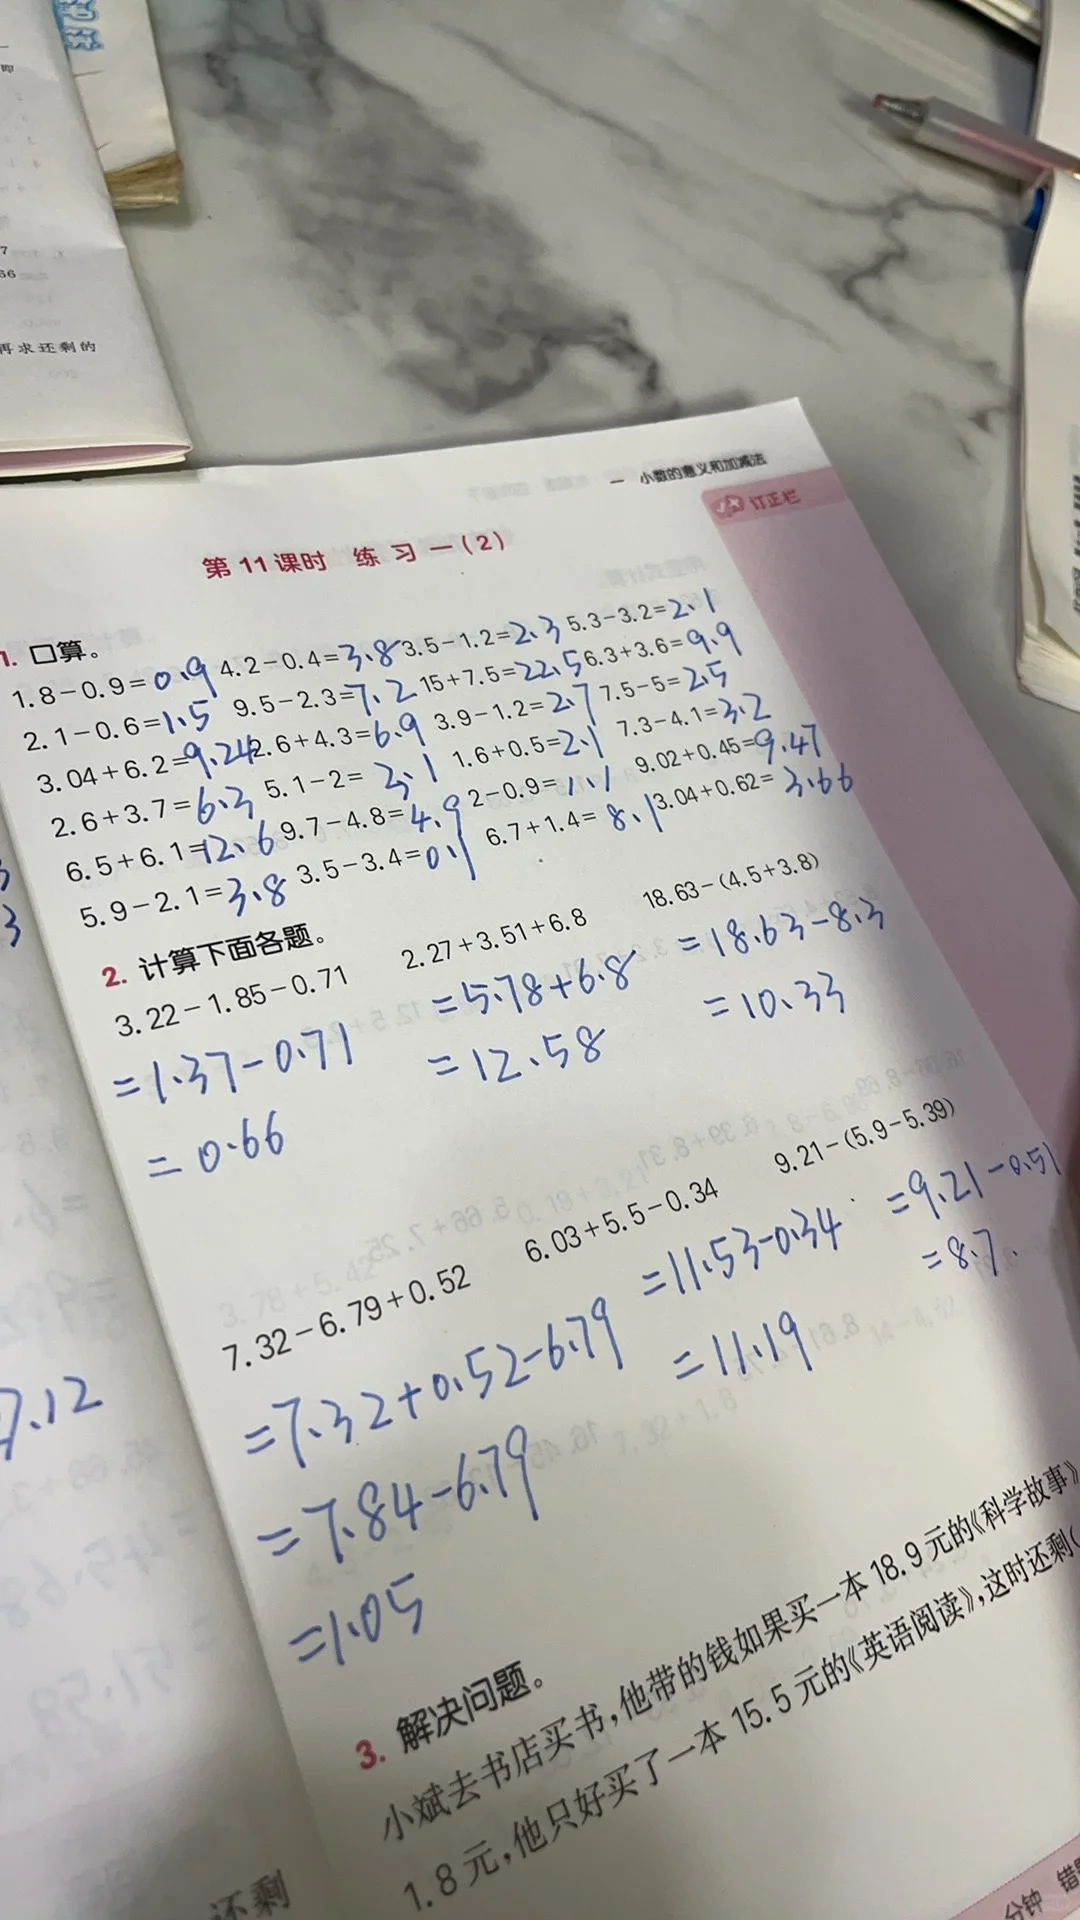 再求还剩的
一 小数的意义和加减法
订正栏
第11课时 练习一(2)
1. 口算。
1.8-0.9=0.9 4.2-0.4=3.8 3.5-1.2=2.3 5.3-3.2=2.1
2.1-0.6=1.5 9.5-2.3=7.2 15+7.5=22.5 6.3+3.6=9.9
3.04+6.2=9.24 2.6+4.3=6.9 3.9-1.2=2.7 7.5-5=2.5
2.6+3.7=6.3 5.1-2=3.1 1.6+0.5=2.1 7.3-4.1=3.2
6.5+6.1=12.6 9.7-4.8=4.9 2-0.9=1.1 9.02+0.45=9.47
5.9-2.1=3.8 3.5-3.4=0.1 6.7+1.4=8.1 3.04+0.62=3.66
2. 计算下面各题。
3.22-1.85-0.71 2.27+3.51+6.8 18.63-(4.5+3.8)
=1.37-0.71 =5.78+6.8 =18.63-8.3
=0.66 =12.58 =10.33
7.32-6.79+0.52 6.03+5.5-0.34 9.21-(5.9-5.39)
=7.32+0.52-6.79 =11.53-0.34 =9.21-0.51
=7.84-6.79 =11.19 =8.7
=1.05
7.12
3. 解决问题。
小斌去书店买书，他带的钱如果买一本18.9元的《科学故事》
1.8元，他只好买了一本15.5元的《英语阅读》，这时还剩(
还剩
分钟 错